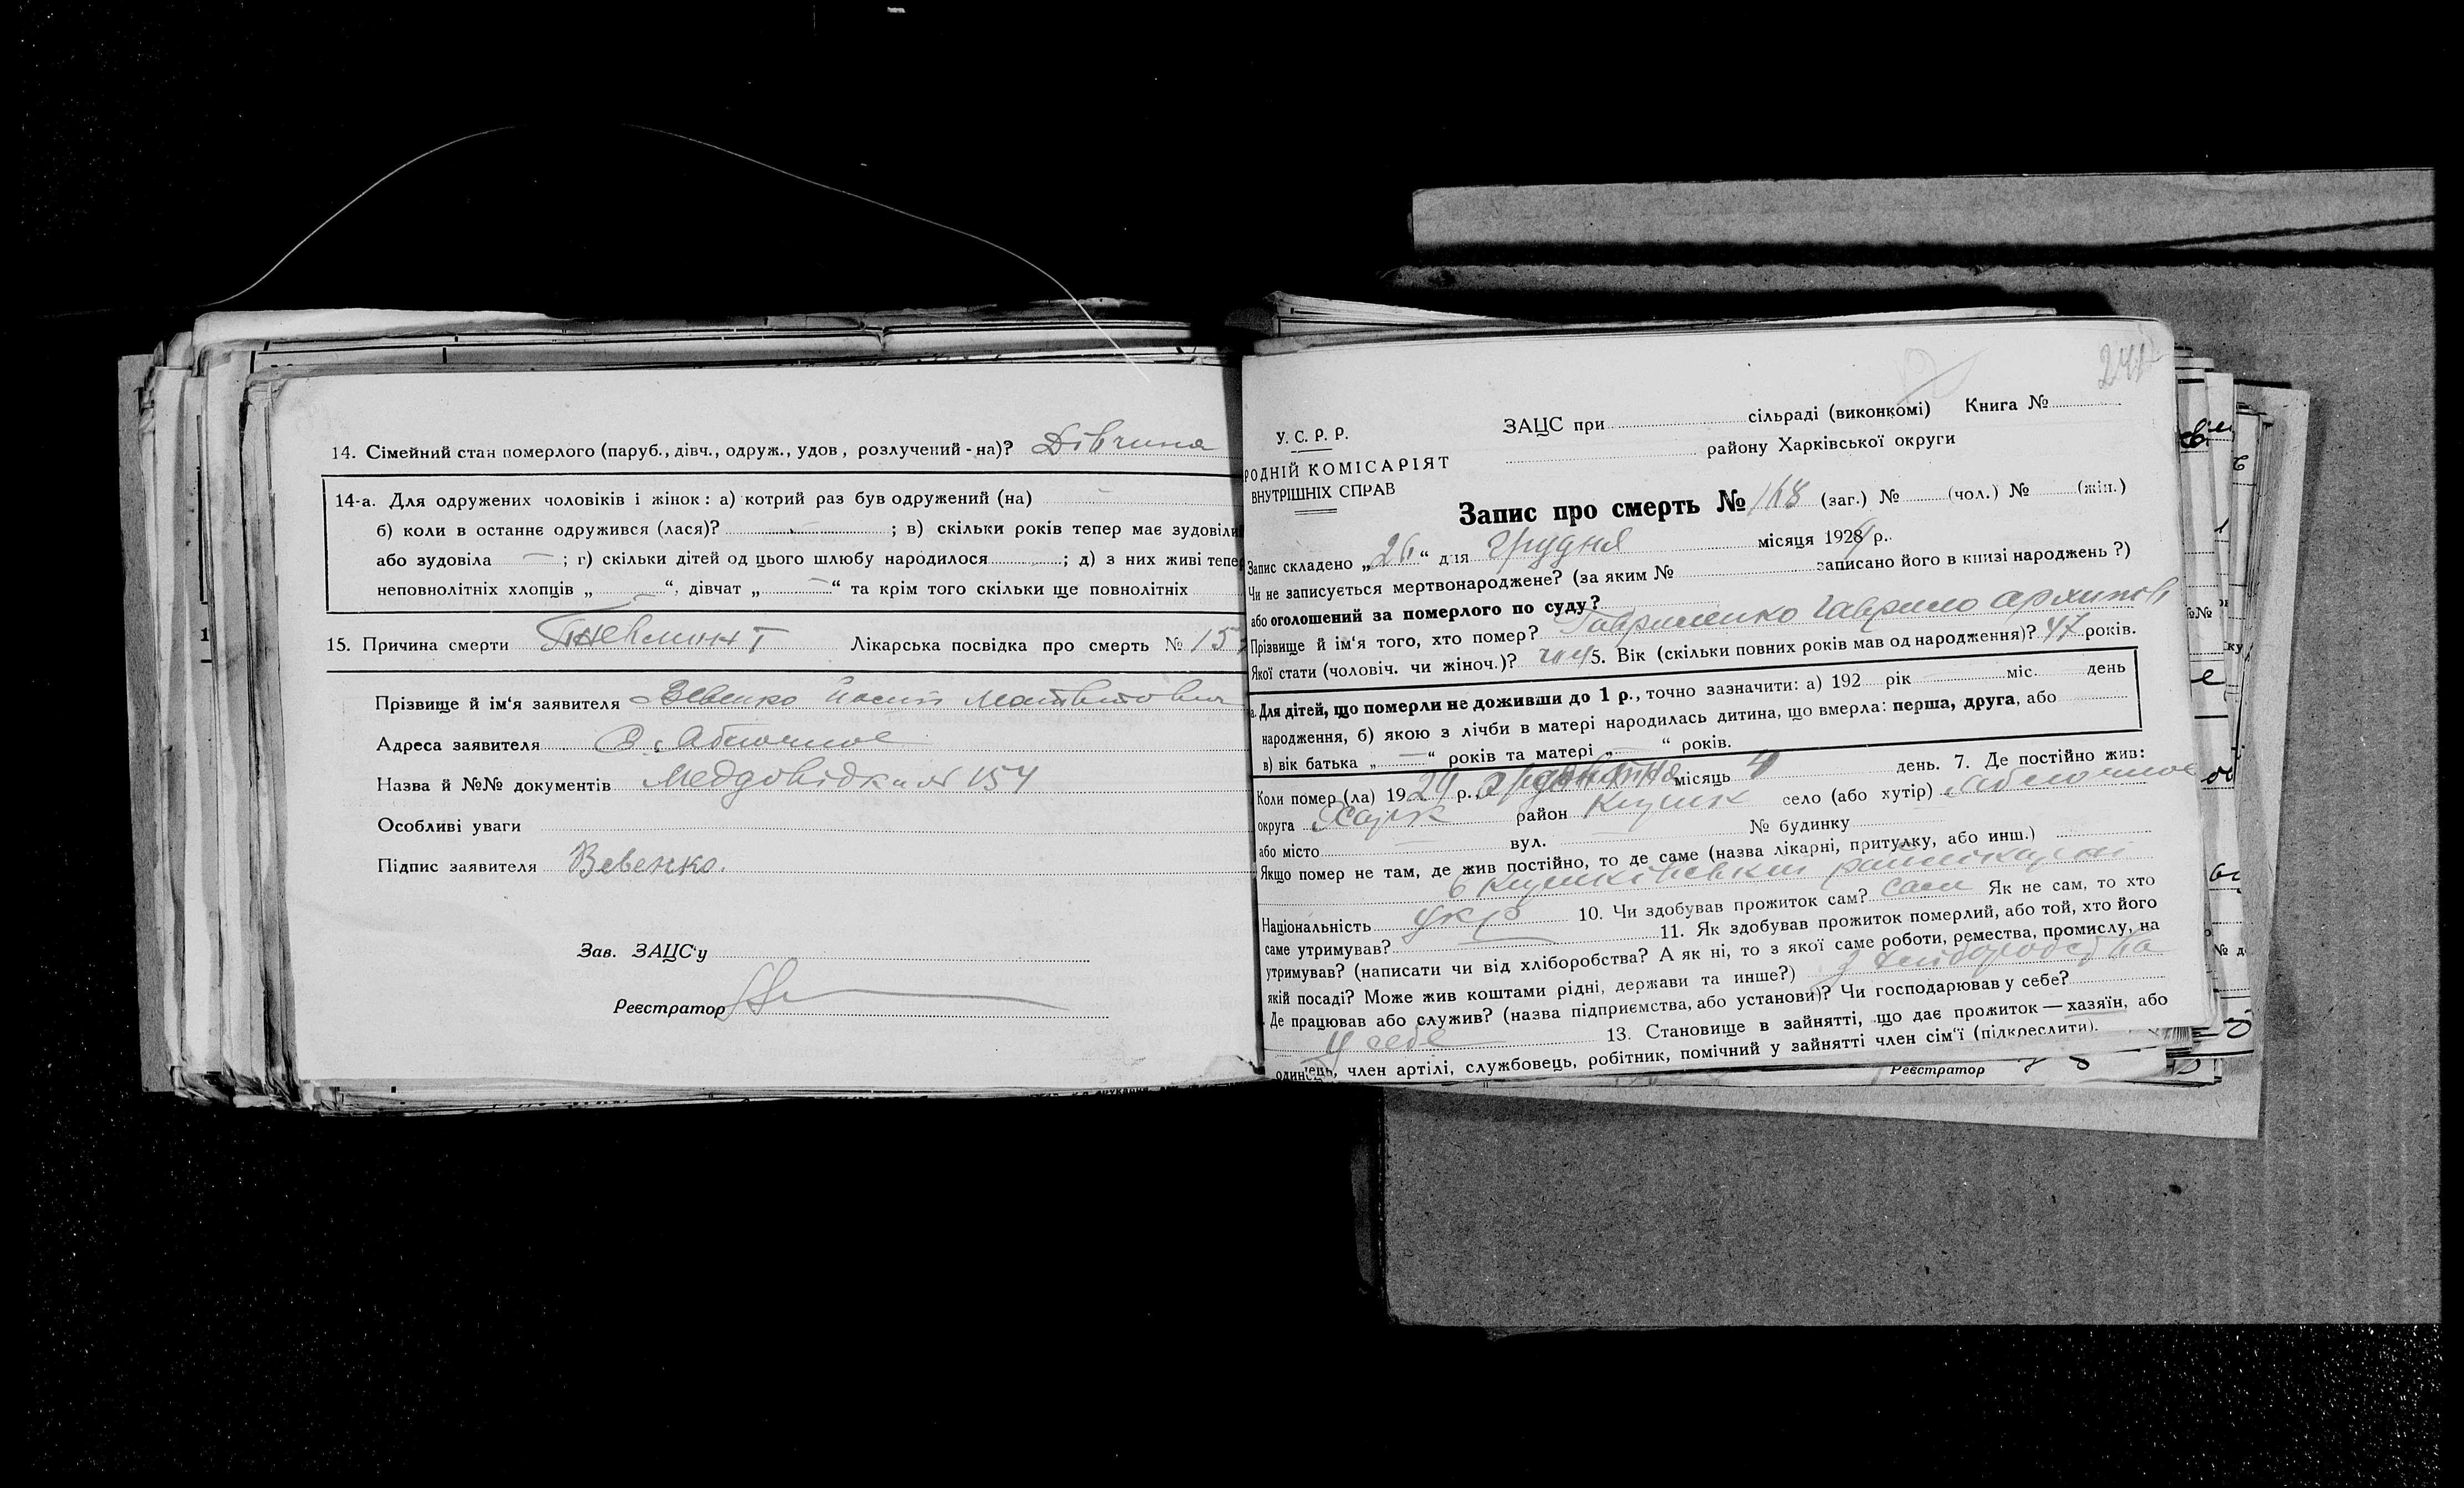 14. Сімейний стан померлого (паруб., дівч., одруж., удов, розлучений - на)? Дівчина
14-а. Для одружених чоловіків і жінок: а) котрий раз був одружений (на)
б) коли в останнє одружився (лася)? ; в) скільки років тепер має зудовіли
або зудовіла — ; г) скільки дітей од цього шлюбу народилося ; д) з них живі тепе
неповнолітніх хлопців „ — “, дівчат „ — “ та крім того скільки ще повнолітніх
15. Причина смерти Лікарська посвідка про смерть № 15
Прізвище й ім‘я заявителя Вевенко
Адреса заявителя С. Аблочное
Назва й №№ документів Медповідка № 154
Особливі уваги
Підпис заявителя Вевенко.
Зав. ЗАЦС‘у
Реєстратор
241
У. С. Р. Р.
ЗАЦС при сільраді (виконкомі) Книга №
РОДНІЙ КОМІСАРІЯТ
району Харківської округи
ВНУТРІШНІХ СПРАВ
Запис про смерть № 168 (заг.) № (чол.) № (жін.)
Запис складено „26“ дня Грудня місяця 1929 р.
Чи не записується мертвонароджене? (за яким № записано його в книзі народжень?)
або оголошений за померлого по суду?
Прізвище й ім‘я того, хто помер? Гавриленко Гаврило Архипов
Якої стати (чоловіч. чи жіноч.)? чол 5. Вік (скільки повних років мав од народження)? 47 років.
а. Для дітей, що померли не доживши до 1 р., точно зазначити: а) 192 рік міс. день
народження, б) якою з лічби в матері народилась дитина, що вмерла: перша, друга, або
в) вік батька „ — “ років та матері „ — “ років.
Коли помер (ла) 1929 р. місяць 4 день. 7. Де постійно жив:
округа Харк район село (або хутір) Аблочное
або місто — вул. — № будинку
Якщо помер не там, де жив постійно, то де саме (назва лікарні, притулку, або инш.)
в райлікарні
Національність укр 10. Чи здобував прожиток сам? сам Як не сам, то хто
саме утримував? 11. Як здобував прожиток померлий, або той, хто його
утримував? (написати чи від хліборобства? А як ні, то з якої саме роботи, ремества, промислу, на
якій посаді? Може жив коштами рідні, держави та инше?) з хліборобства
Де працював або служив? (назва підприємства, або установи)? Чи господарював у себе?
У себе 13. Становище в зайнятті, що дає прожиток — хазяїн, або
одинець, член артілі, службовець, робітник, помічний у зайнятті член сім‘ї (підкреслити).
Реєстратор